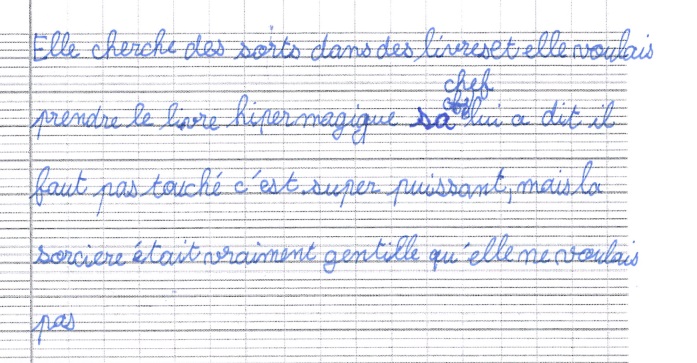 Elle cherche des sorts dans des livres et elle voulais
prendre le livre hiper magigue sa chef lui a dit il
faut pas touché c'est super puissant, mais la
sorciere était vraiment gentille qu'elle ne voulais
pas